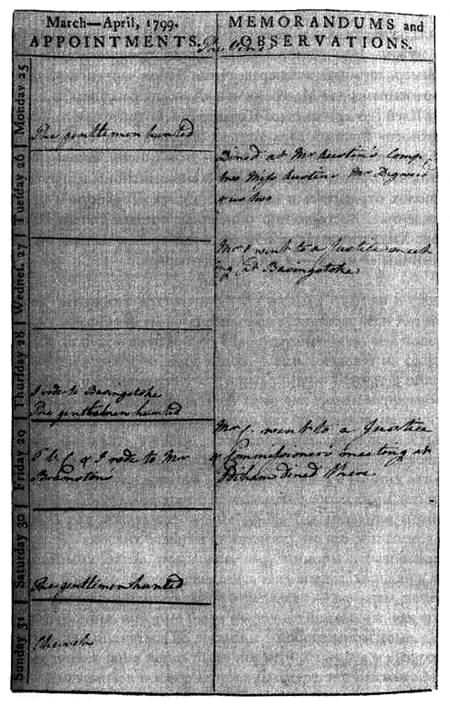 March—April, 1799.
APPOINTMENTS.
MEMORANDUMS and
OBSERVATIONS.
The Vine
Monday 25
The gentlemen hunted
Tuesday 26
Dined at Mr Austin's Comp
Miss Austin Mr Digweed
& us two
Wednes. 27
Mr. C went to a Justice meet
ing at Basingstoke
Thursday 28
I rode to Basingstoke
The gentlemen hunted
Friday 29
& I rode to Mr
Bramston
Mr C. went to a Justice
& Commissioners meeting at
Odiham dined there
Saturday 30
The gentlemen hunted
Sunday 31
Church